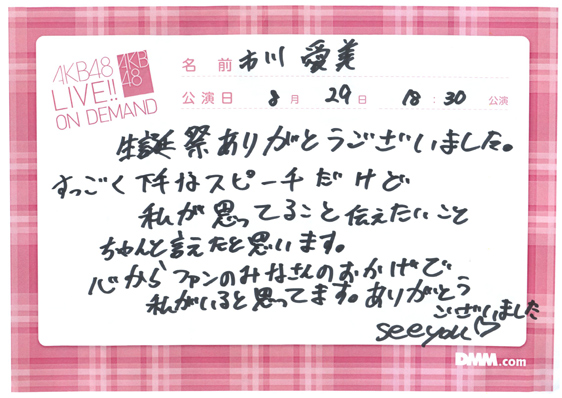 AKB48
LIVE!!
ON DEMAND
AKB
48
名前 市川 愛美
公演日 8月 29日 18:30 公演
生誕祭ありがとうございました。
すっごく下手なスピーチだけど
私が思ってること伝えたいこと
ちゃんと言えたと思います。
心からファンのみなさんのおかげで
私がいると思ってます。ありがとう
ございました
see you♡
DMM.com